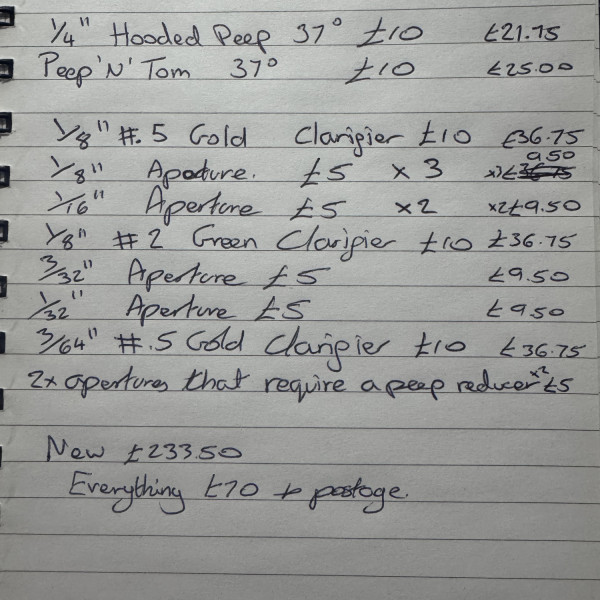 1/4" Hooded Peep 37° £10 £21.75
Peep 'N' Tom 37° £10 £25.00
1/8" #.5 Gold Clarifier £10 £36.75
1/8" Aperture. £5 x 3 x3 £9.50
1/16" Aperture £5 x2 x2 £9.50
1/8" #2 Green Clarifier £10 £36.75
3/32" Aperture £5 £9.50
1/32" Aperture £5 £9.50
3/64" #.5 Gold Clarifier £10 £36.75
2x apertures that require a peep reducer x2 £5
New £233.50
Everything £70 + postage.